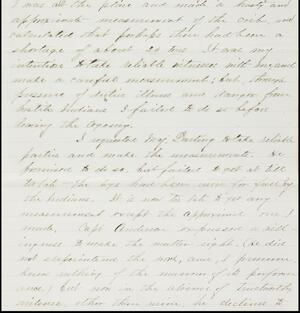 I was at the place and made a hasty and
approximate measurement of the and
calculated that perhaps there had been a
shortage of about 20 tons. It was my
intention to take reliable witnesses with me and
make a careful measurement; but, through
pressure of duties illness and danger from
hostile Indians I failed to do so before
leaving the Agency.
I requested Maj Darling to take reliable
parties and make the measurements. He
promised to do so, but failed to get at it till
too late - the hay had been for fuel by
the Indians. It is now too late to get any
measurement except the approximate one I
made. Capt Anderson expresses a will-
ingness to make the matter right. He did
not superintend the work, and, I presume,
knew nothing of the manner of its perform-
ance) but now in the absence of trustworthy
evidence, other than mine, he declines to